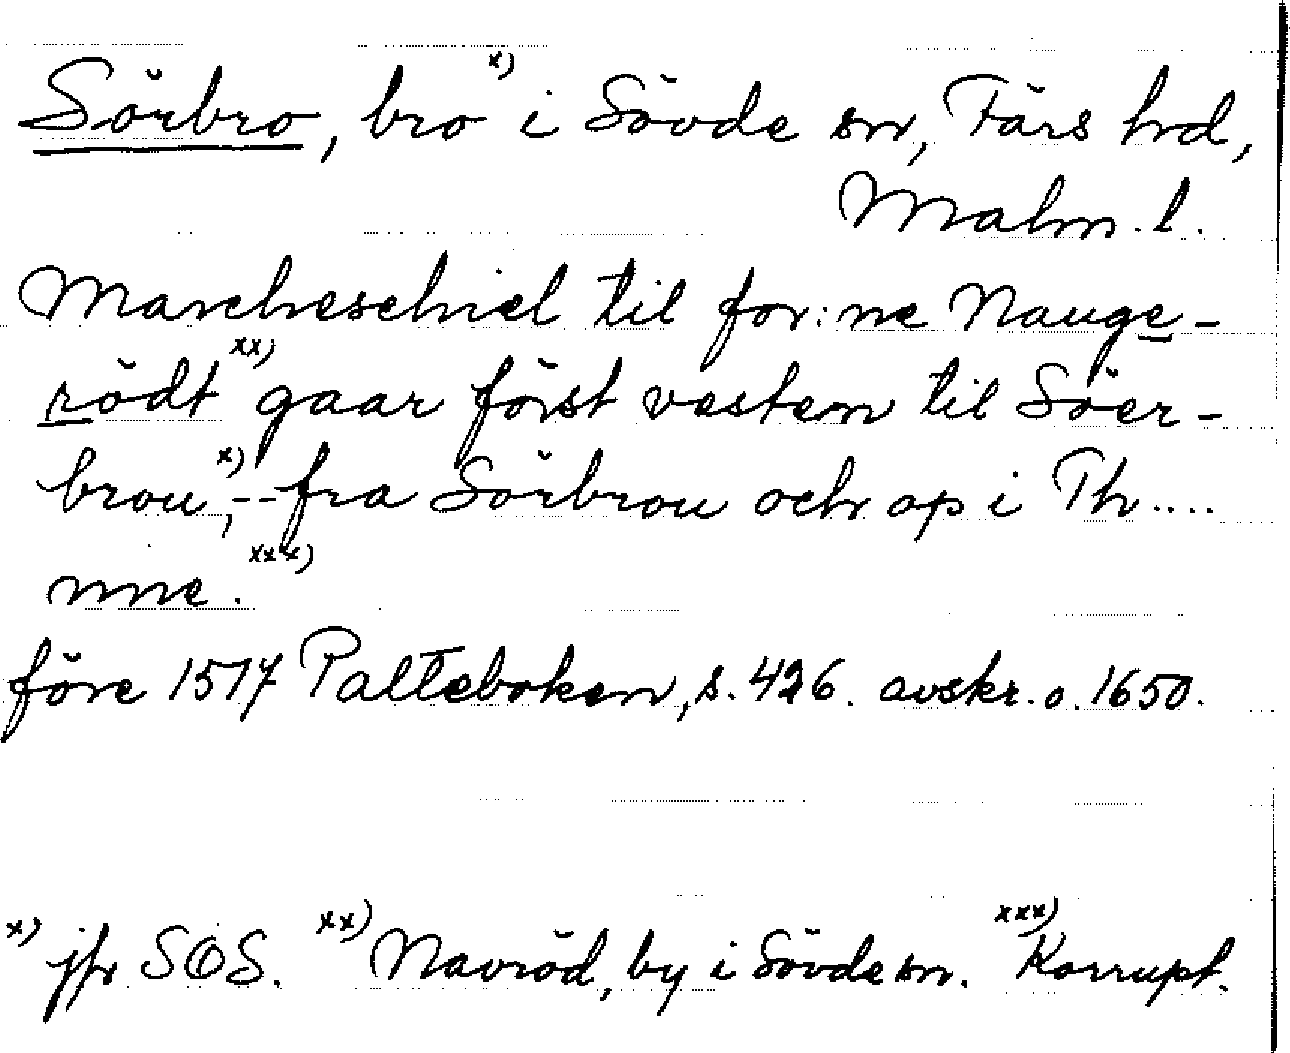 Sörbro, bro x) i Sövde sn, Färs hrd,
Malm. l.
Marcheschiel til for: ne Nauge-
rödt xx) gaar först vesten til Söer-
brou x), -- fra Sörbrou och op i Th....
nne. xxx)
före 1517 Palteboken, s. 426. avskr. o. 1650.
x) jfr SOS. xx) Navröd, by i Sövde sn. xxx) Korrupt.